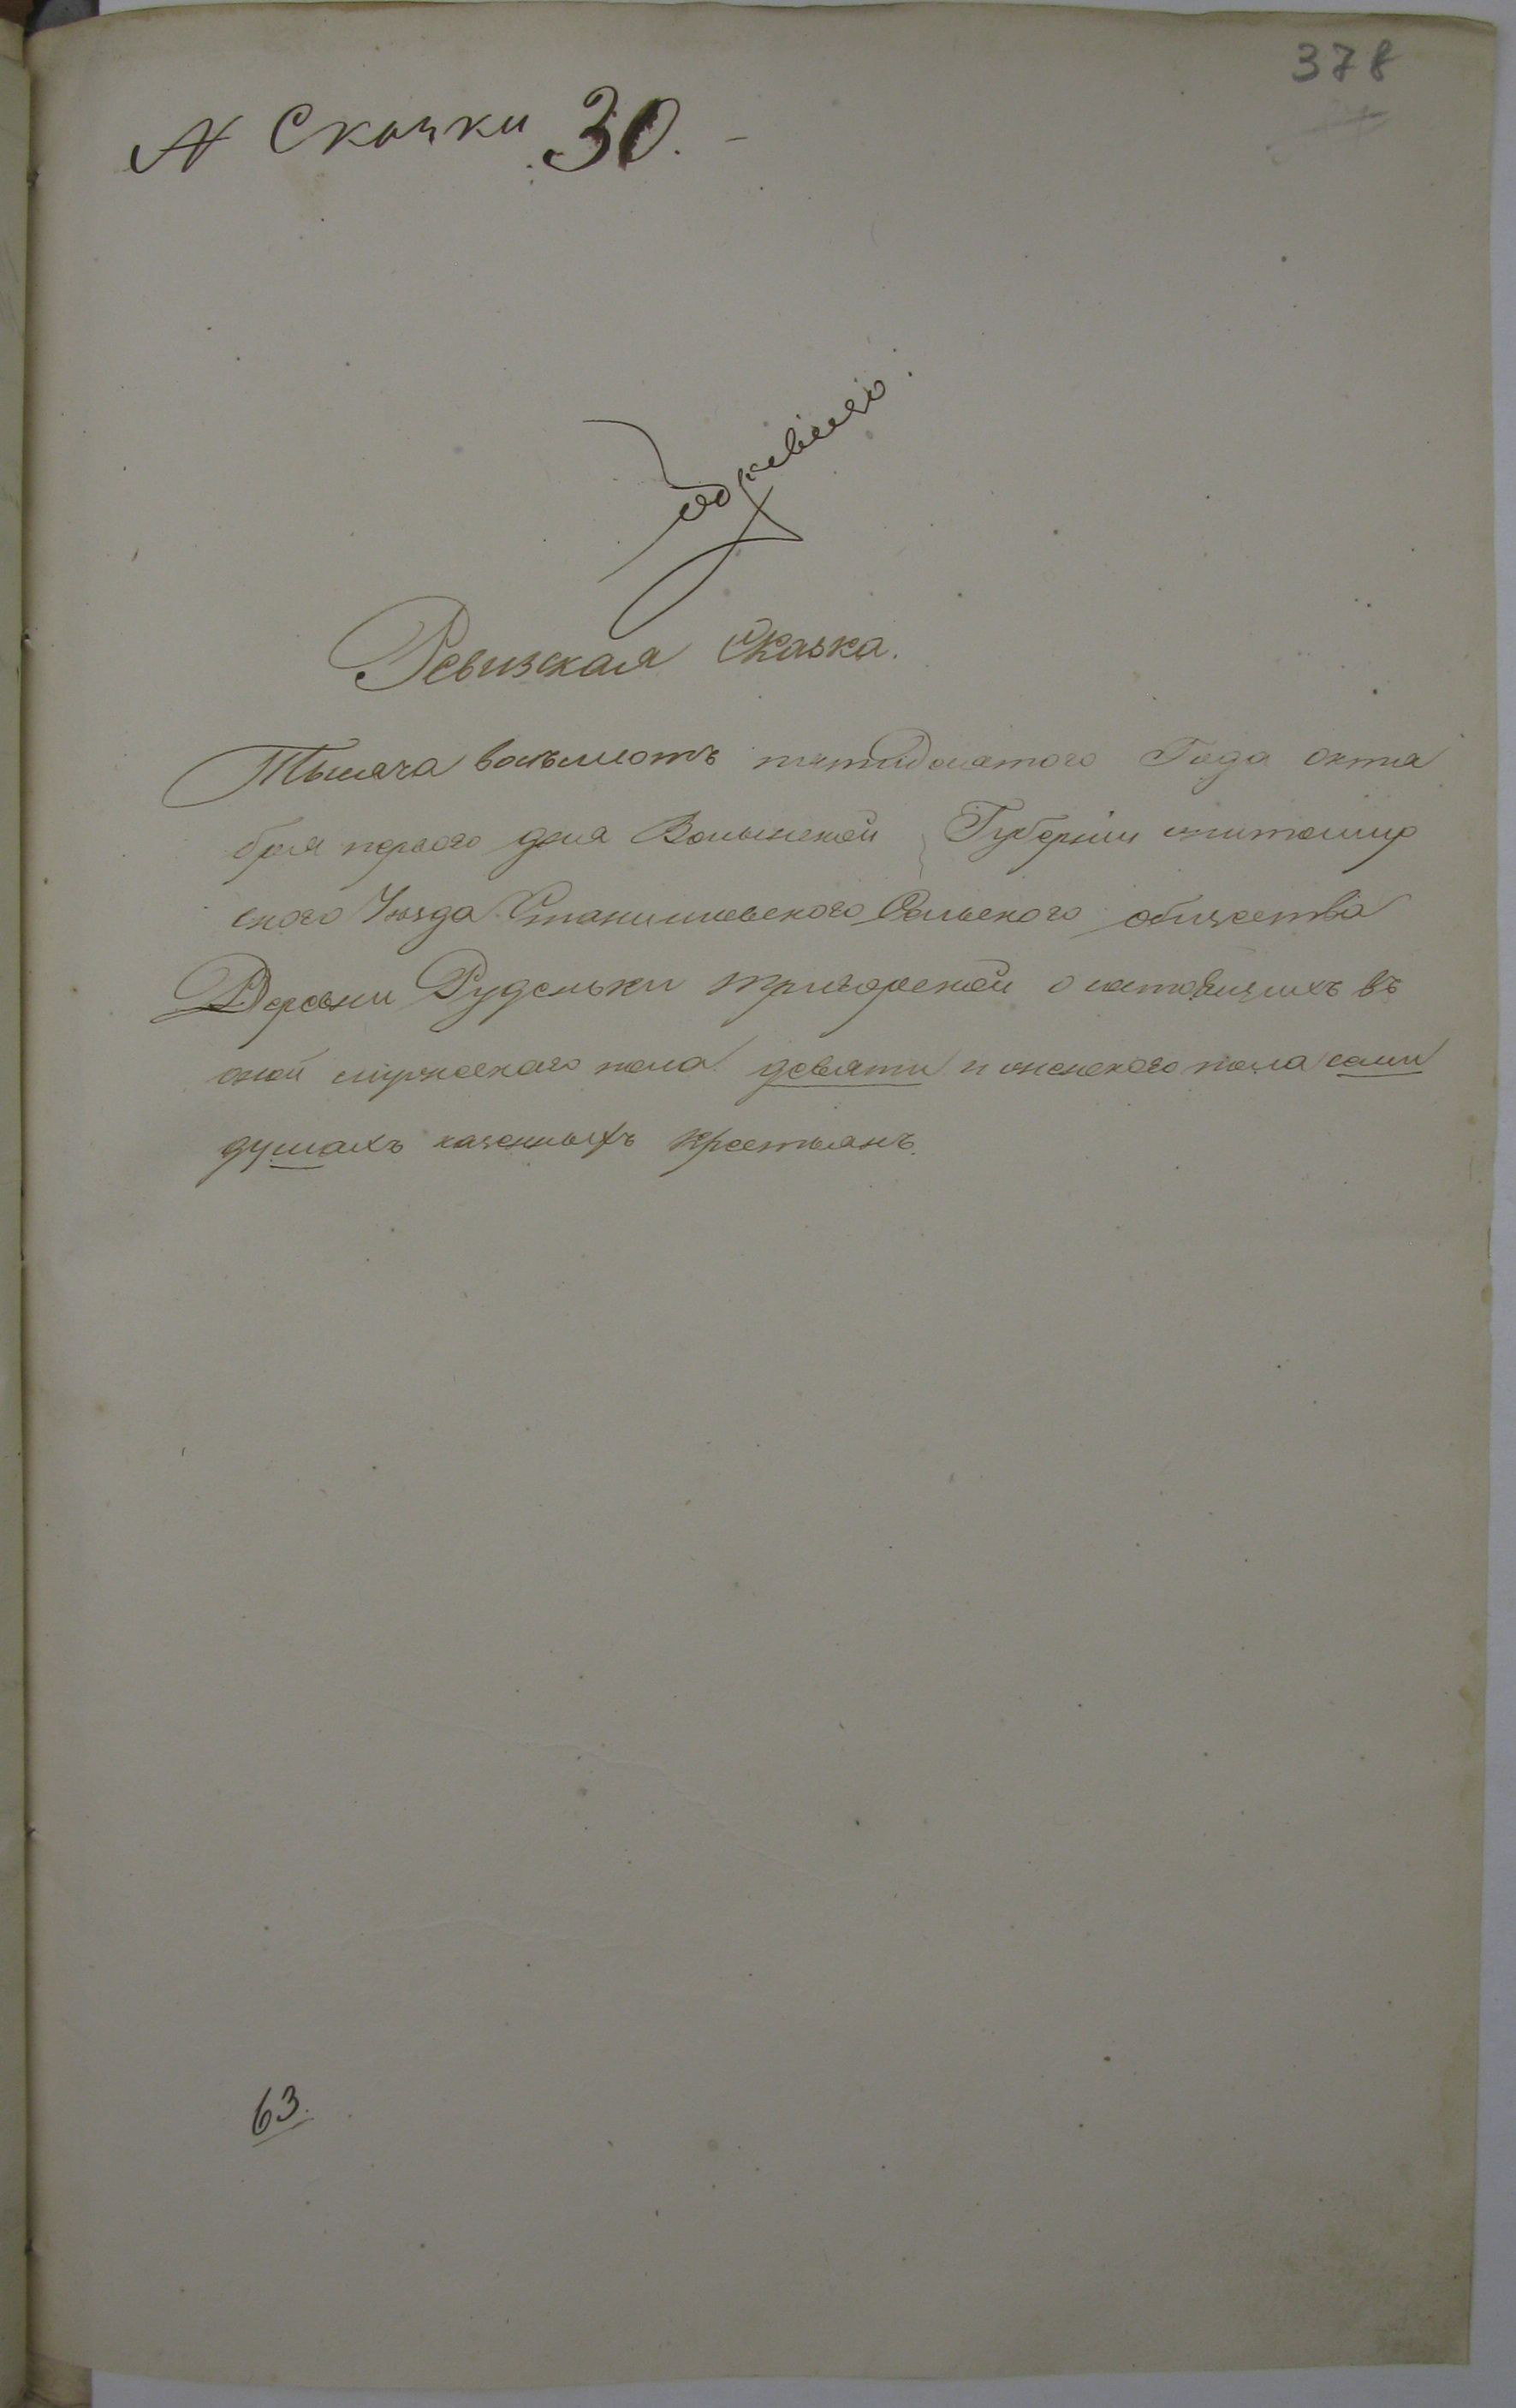 378
№ Скаски 30. -
Ревизская Сказка.
Тысяча восъмсотъ пятидесятого Года октя
бря перваго дня Волынской Губернии житомир
ского Уезда Станишевского Сельского общества
Деревни Руденьки тригорской о состоящихъ въ
оной мужескаго пола девяти и женскаго пола семи
душахъ казенныхъ крестьянъ.
63.